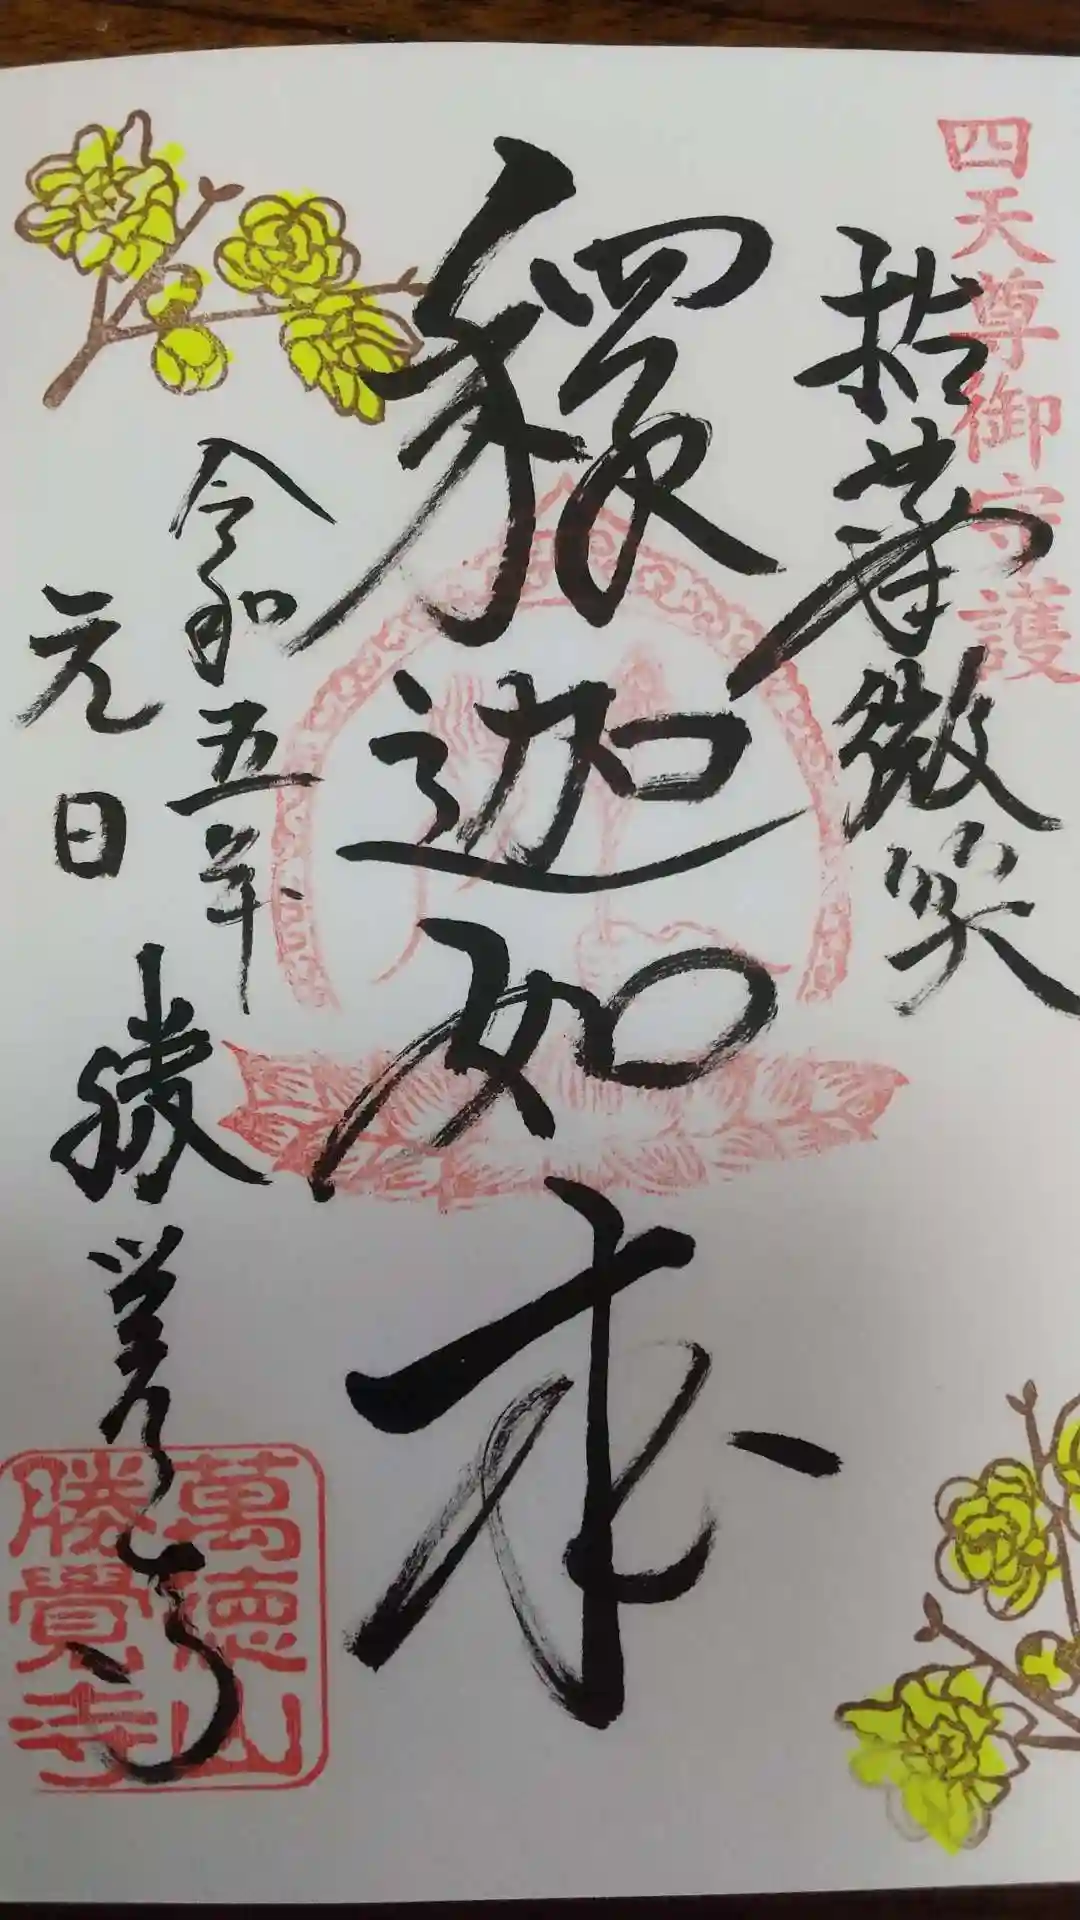 四天尊御守護
拈華微笑
釋迦如来
令和五年
元日
勝覚寺
萬徳山
勝覺寺